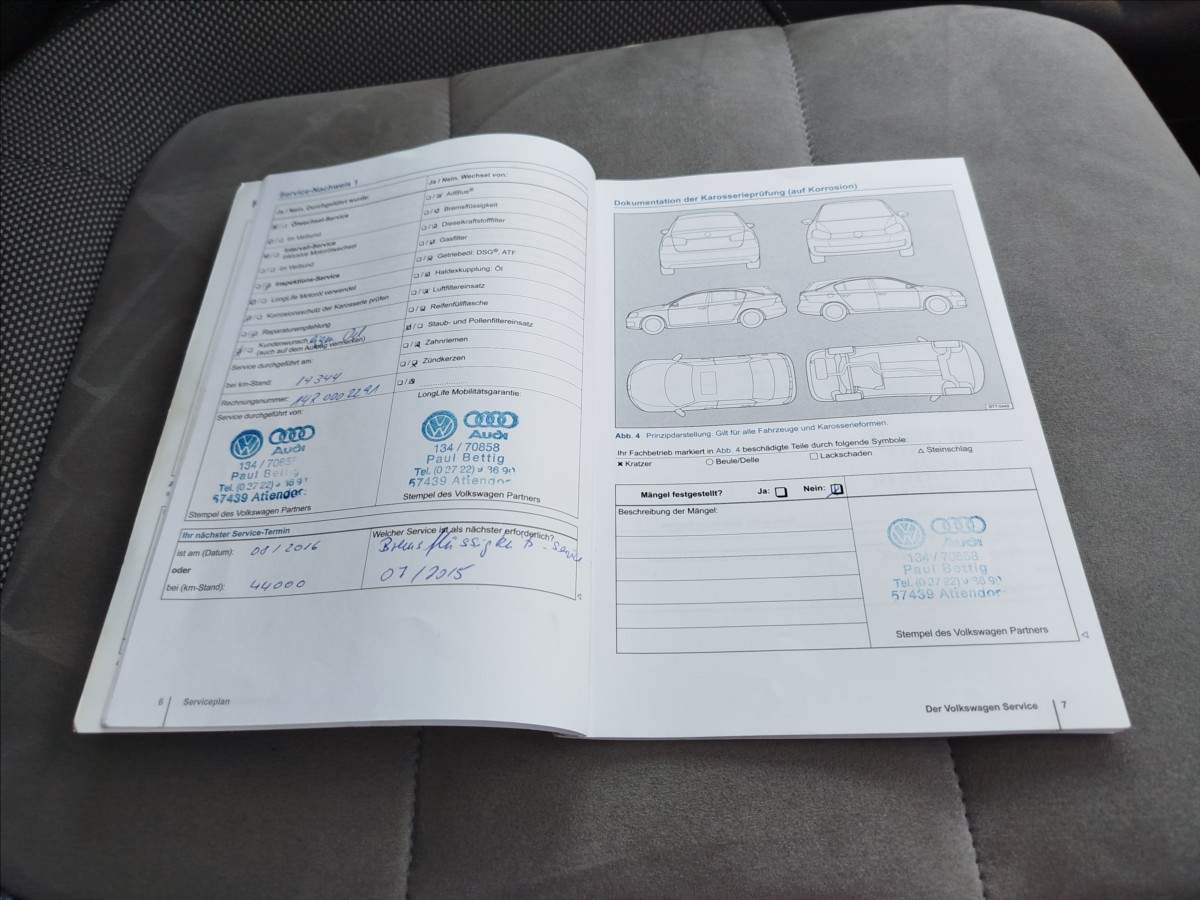 Service-Nachweis 1
Ja / Nein, Durchgeführt wurde:
Ölwechsel-Service
Im Verbund
Intervall-Service
inklusive Motorölwechsel
Im Verbund
Inspektions-Service
LongLife Motoröl verwendet
Korrosionsschutz der Karosserie prüfen
Reparaturempfehlung
Kundenwunsch
(auch auf dem Auftrag vermerken)
Service durchgeführt am:
bei km-Stand: 17344
Rechnungsnummer:
Service durchgeführt von:
Audi
134 / 70858
Paul Bettig
57439 Attendor
Stempel des Volkswagen Partners
Ja / Nein, Wechsel von:
AdBlue®
Bremsflüssigkeit
Dieselkraftstofffilter
Gasfilter
Getriebeöl: DSG®, ATF
Haldexkupplung: Öl
Luftfiltereinsatz
Reifenfüllflasche
Staub- und Pollenfiltereinsatz
Zahnriemen
Zündkerzen
LongLife Mobilitätsgarantie:
Audi
134 / 70858
Paul Bettig
Tel. (0 27 22) 36 90
57439 Attendor
Stempel des Volkswagen Partners
Ihr nächster Service-Termin
ist am (Datum): 08/2016
oder
bei (km-Stand): 44000
Welcher Service ist als nächster erforderlich?
Bremsflüssigkeits-Service
07/2015
6 Serviceplan
Dokumentation der Karosserieprüfung (auf Korrosion)
Abb. 4 Prinzipdarstellung: Gilt für alle Fahrzeuge und Karosserieformen.
Ihr Fachbetrieb markiert in Abb. 4 beschädigte Teile durch folgende Symbole:
Kratzer Beule/Delle Lackschaden Steinschlag
Mängel festgestellt? Ja: Nein:
Beschreibung der Mängel:
Audi
134 / 70858
Paul Bettig
Tel. (0 27 22) 36 90
57439 Attendor
Stempel des Volkswagen Partners
Der Volkswagen Service 7